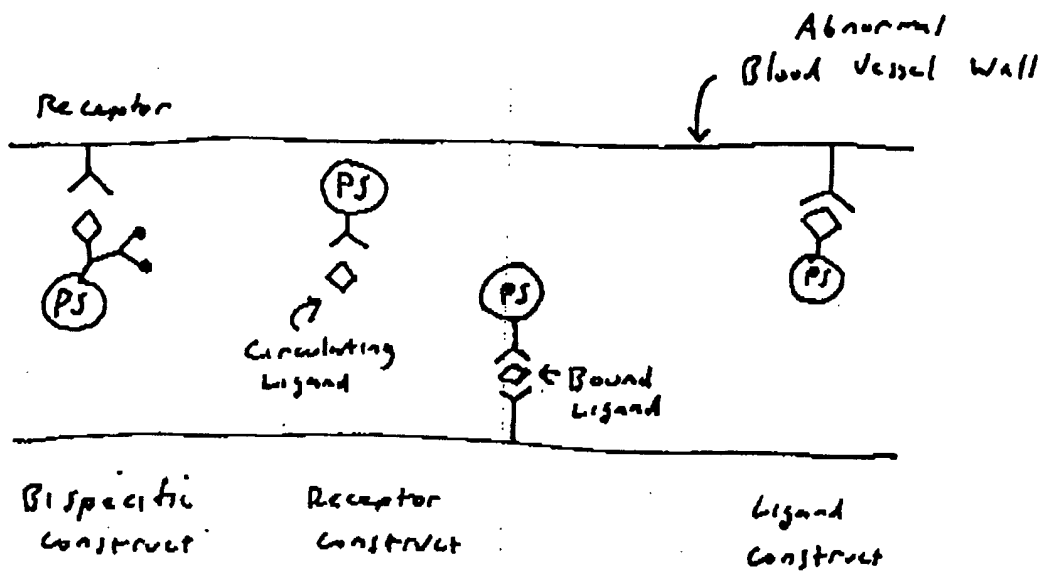 Abnormal
Blood Vessel Wall
Receptor
PS
PS
PS
PS
Circulating
Ligand
Bound
Ligand
Bispecific
Construct
Receptor
Construct
Ligand
Construct